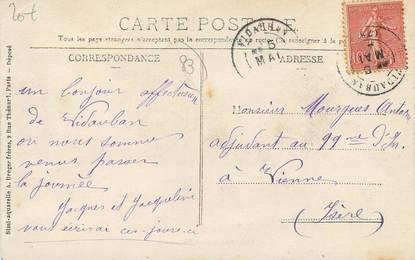 20€
CARTE POSTALE
Tous les pays étrangers n'acceptent pas la correspondance au
se renseigner à la
CORRESPONDANCE
ADRESSE
83
VIDAUBAN
MAI
VIDAUBAN
MAI
un bonjour affectueux
de Vidauban
où nous sommes
venus passer
la journée
Jacques et Jacqueline
vous écrirai ces jours-ci
Monsieur Mourgues Antoine
adjudant au 99me d'In.
à Vienne
(Isère)
Simi-aquarelle A. Breger frères, 9 Rue Thénard, Paris - Déposé